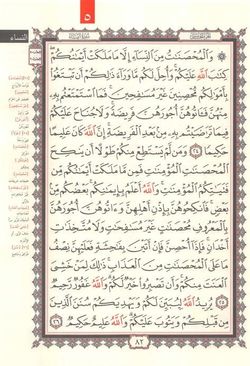 ٥
النساء
وَالْمُحْصَنَاتُ مِنَ النِّسَاءِ إِلَّا مَا مَلَكَتْ أَيْمَانُكُمْ
كِتَابَ اللَّهِ عَلَيْكُمْ وَأُحِلَّ لَكُمْ مَا وَرَاءَ ذَٰلِكُمْ أَنْ تَبْتَغُوا
بِأَمْوَالِكُمْ مُحْصِنِينَ غَيْرَ مُسَافِحِينَ فَمَا اسْتَمْتَعْتُمْ بِهِ
مِنْهُنَّ فَآتُوهُنَّ أُجُورَهُنَّ فَرِيضَةً وَلَا جُنَاحَ عَلَيْكُمْ
فِيمَا تَرَاضَيْتُمْ بِهِ مِنْ بَعْدِ الْفَرِيضَةِ إِنَّ اللَّهَ كَانَ عَلِيمًا
حَكِيمًا ٢٤ وَمَنْ لَمْ يَسْتَطِعْ مِنْكُمْ طَوْلًا أَنْ يَنْكِحَ
الْمُحْصَنَاتِ الْمُؤْمِنَاتِ فَمِنْ مَا مَلَكَتْ أَيْمَانُكُمْ مِنْ
فَتَيَاتِكُمُ الْمُؤْمِنَاتِ وَاللَّهُ أَعْلَمُ بِإِيمَانِكُمْ بَعْضُكُمْ مِنْ
بَعْضٍ فَانْكِحُوهُنَّ بِإِذْنِ أَهْلِهِنَّ وَآتُوهُنَّ أُجُورَهُنَّ
بِالْمَعْرُوفِ مُحْصَنَاتٍ غَيْرَ مُسَافِحَاتٍ وَلَا مُتَّخِذَاتِ
أَخْدَانٍ فَإِذَا أُحْصِنَّ فَإِنْ أَتَيْنَ بِفَاحِشَةٍ فَعَلَيْهِنَّ نِصْفُ
مَا عَلَى الْمُحْصَنَاتِ مِنَ الْعَذَابِ ذَٰلِكَ لِمَنْ خَشِيَ
الْعَنَتَ مِنْكُمْ وَأَنْ تَصْبِرُوا خَيْرٌ لَكُمْ وَاللَّهُ غَفُورٌ رَحِيمٌ
٢٥ يُرِيدُ اللَّهُ لِيُبَيِّنَ لَكُمْ وَيَهْدِيَكُمْ سُنَنَ الَّذِينَ
مِنْ قَبْلِكُمْ وَيَتُوبَ عَلَيْكُمْ وَاللَّهُ عَلِيمٌ حَكِيمٌ ٢٦
٨٢